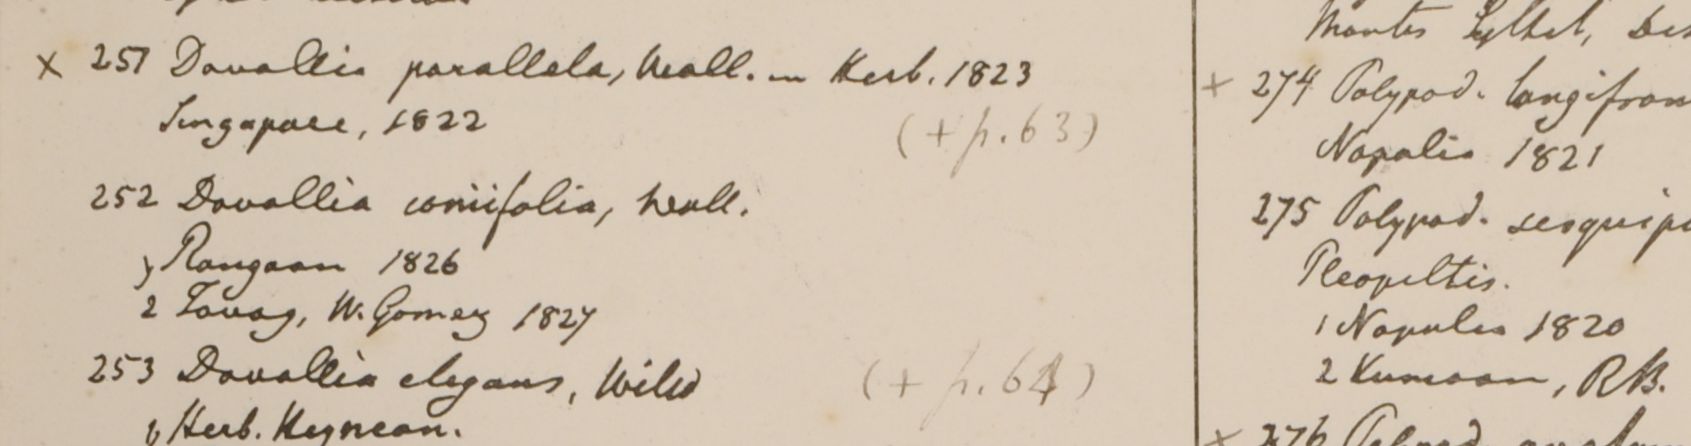 × 251 Davallia parallela, Wall. in Herb. 1823
Singapore, 1822
(+ p. 63)
252 Davallia coniifolia, Wall.
1 Rangoon 1826
2 Tavoy, W. Gomez 1827
253 Davallia elegans, Willd
(+ p. 64)
1 Herb. Heynean.
Montes
+ 274 Polypod. longifron
Napalia 1821
275 Polypod. sesquip
Pleopeltis.
1 Napalia 1820
2 Kumaon, RB.
× 276 Polypod.